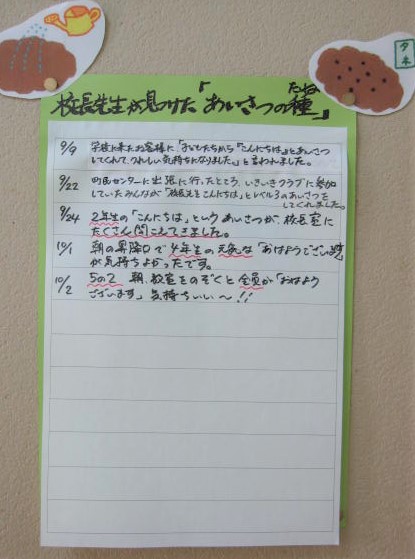 タネ
校長先生が見つけた「あいさつの種」
たね
9/9 学校に来たお客様に、「子どもたちから『こんにちは』とあいさつ
してくれて、うれしい気持ちになりました。」と言われました。
9/22 町民センターに出張に行ったところ、いきいきクラブに参加
していたみんなが「校長先生こんにちは」とレベル3のあいさつを
してくれました。
9/24 2年生の「こんにちは」というあいさつが、校長室に
たくさん聞こえてきました。
10/1 朝の昇降口で4年生の元気な「おはようございます」
が気持ちよかったです。
10/2 5の2 朝、教室をのぞくと全員が「おはよう
ございます」気持ちいい〜!!